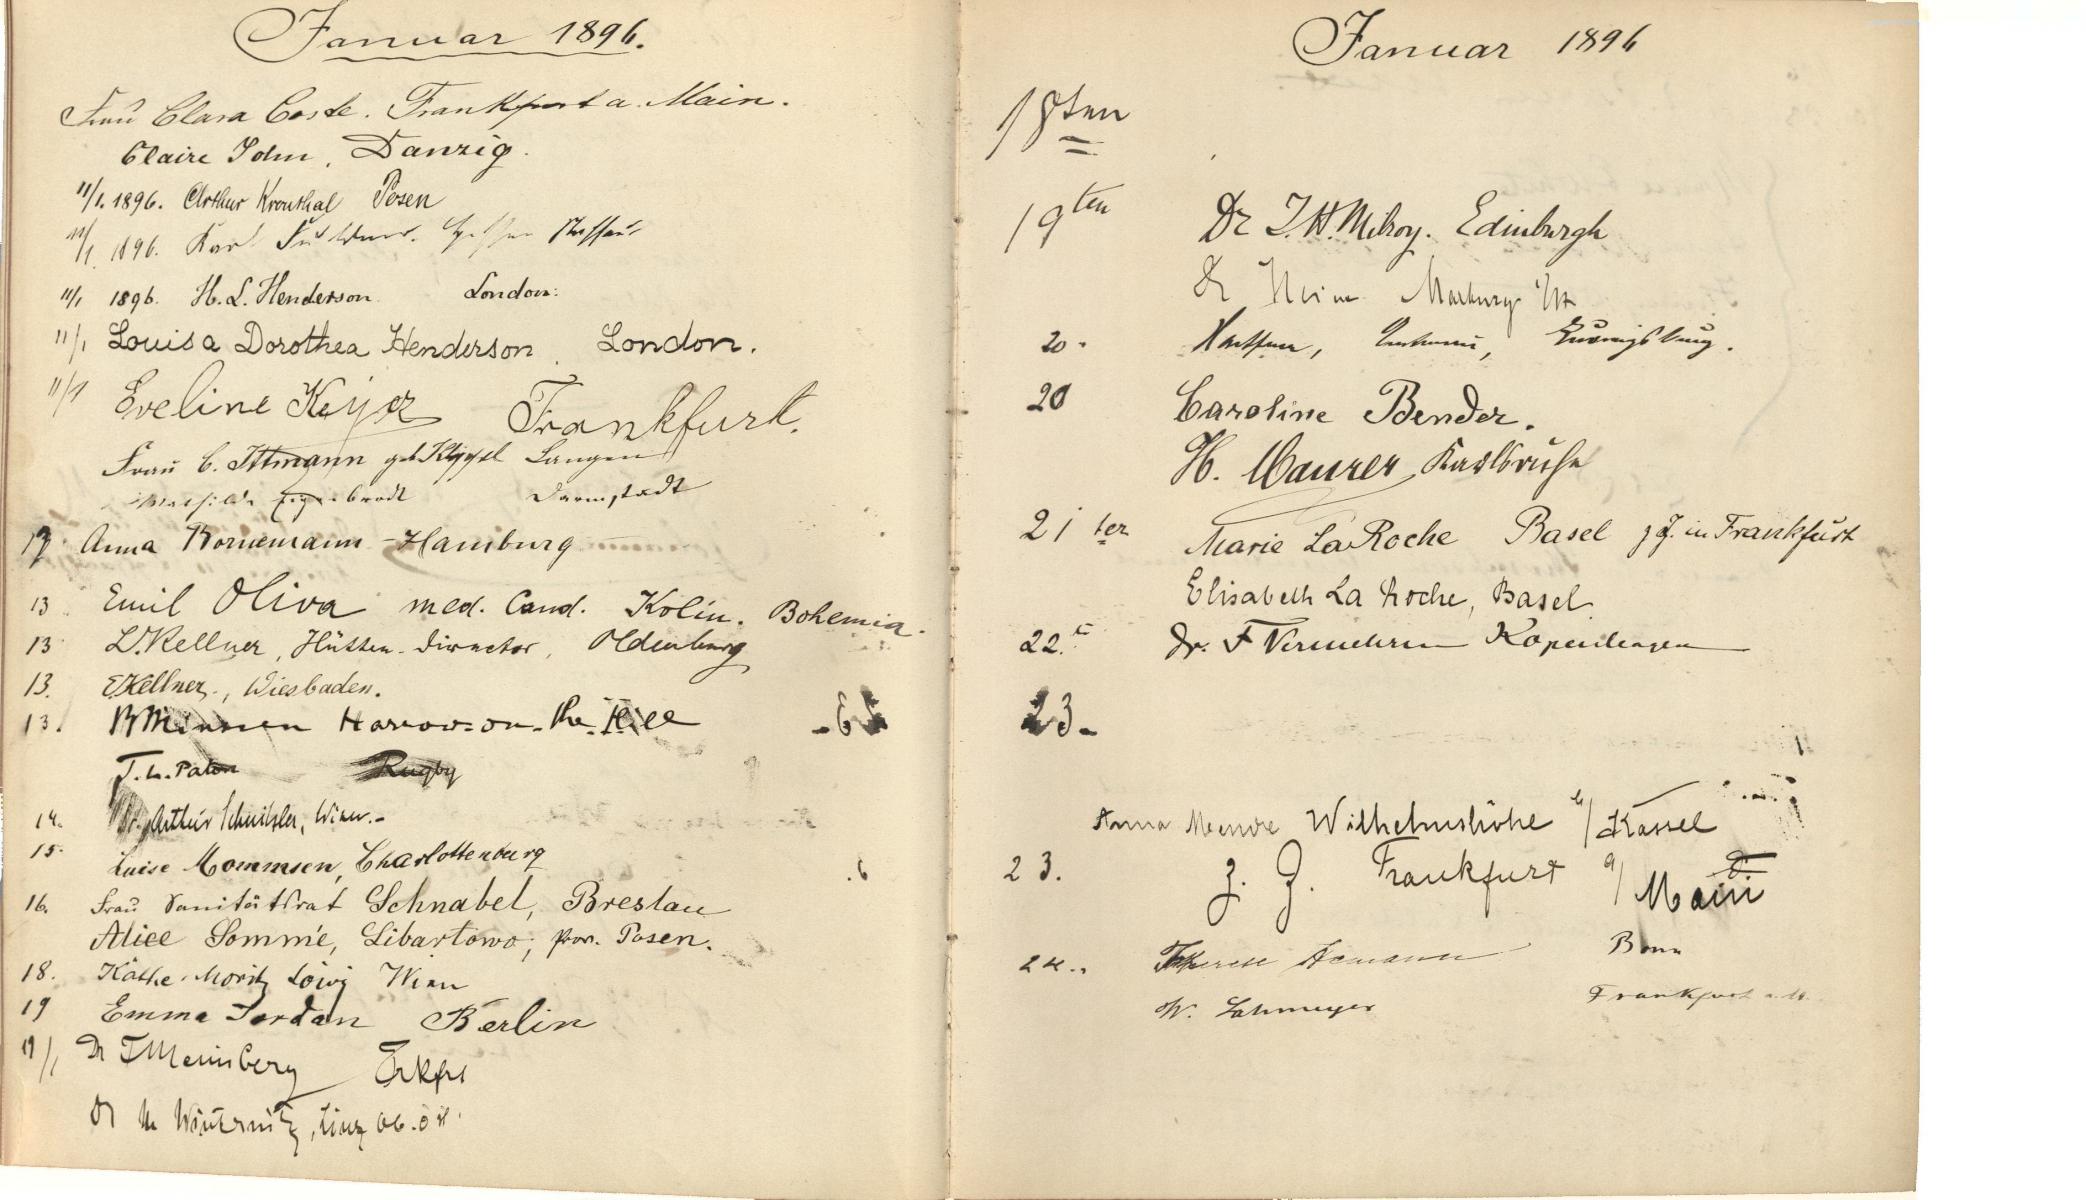 Januar 1896.
Frau Clara Coste. Frankfurt a. Main.
Claire John, Danzig.
11/1. 1896. Arthur Kronthal Posen
11/1. 1896. Karl
11/1 1896. H. L. Henderson London.
11/1 Louisa Dorothea Henderson, London.
11/1 Eveline Keyer Frankfurt.
Frau C. Ittmann geb. Langen
Mathilde Eigenbrodt Darmstadt
Anna Bornemann - Hamburg
13 Emil Oliva med. Cand. Kolin. Bohemia.
13 L. Kellner, Hütten-Director, Oldenburg
13. E. Kellner, Wiesbaden.
13. Harrow-on-the-Hill
J. L. Paton Rugby
14. Dr. Arthur Schnitzler, Wien.-
15. Luise Mommsen, Charlottenburg
16. Frau Sanitätsrat Schnabel, Breslau
Alice Sommé, Libartowo, prov. Posen.
18. Käthe Moritz Löwy Wien
19 Emma Jordan Berlin
19/1 Dr Frkft
Dr M Winternitz, Linz Ob. Öst.
Januar 1896
18ten
19ten Dr T. H. Milroy. Edinburgh
Dr Marburg
20. Ludwigsburg.
20 Caroline Bender.
H. Maurer, Karlsruhe
21ten Marie La Roche Basel z. Z. in Frankfurt
Elisabeth La Roche, Basel
22. Dr. F Vermehren Kopenhagen
23.
Anna Wilhelmshöhe b/Kassel
23. z. Z. Frankfurt a/Main
24. Therese Bonn
W. Lahmeyer Frankfurt a. M.